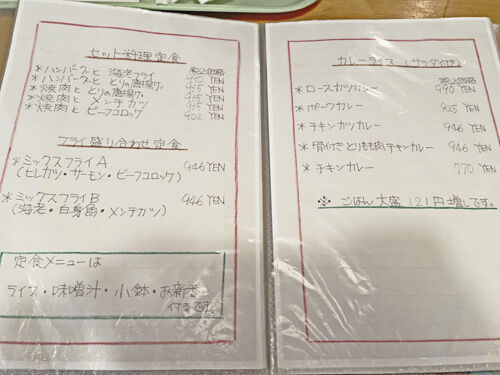 セット料理定食
税込価格
*ハンバーグと海老フライ YEN
*ハンバーグと とりの唐揚げ YEN
*焼肉と とりの唐揚げ 935 YEN
*焼肉と メンチカツ 935 YEN
*焼肉と ビーフコロッケ 902 YEN
フライ盛り合わせ定食
*ミックスフライA 946 YEN
(ヒレカツ・サーモン・ビーフコロッケ)
*ミックスフライB 946 YEN
(海老・白身魚・メンチカツ)
定食メニューは
ライス・味噌汁・小鉢・お新香
付きです。
カレーライス(サラダ付き)
税込価格
*ロースカツカレー 990 YEN
*ポークカレー 825 YEN
*チキンカツカレー 946 YEN
*骨付きとりもも肉チキンカレー 946 YEN
*チキンカレー 770 YEN
※ ごはん大盛121円増しです。